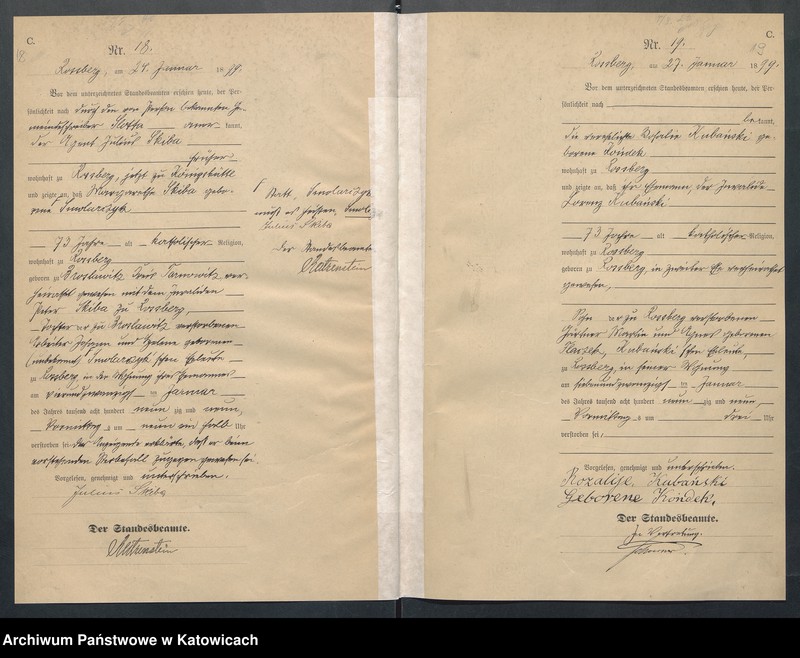 C.
18
Nr. 18.
Rossberg, am 24. Januar 1899.
Vor dem unterzeichneten Standesbeamten erschien heute, der Per-
sönlichkeit nach durch die von Person bekannten Ge-
meindeschreiber Slotta anerkannt,
der Agent Julius Skiba
früher
wohnhaft zu Rossberg, jetzt zu Königshütte
und zeigte an, daß Margarethe Skiba gebo-
rene Smolarczyk
73 Jahre alt katholischer Religion,
wohnhaft zu Rossberg
geboren zu Broslawitz Kreis Tarnowitz ver-
heirathet gewesen mit dem Invaliden
Peter Skiba zu Rossberg,
Tochter der zu Broslawitz verstorbenen
Arbeiter Johann und Helene geborenen
(unbekannt) Smolarczyk'schen Eheleute
zu Rossberg, in der Wohnung ihres Ehemannes
am vierundzwanzigsten Januar
des Jahres tausend acht hundert neunzig und neun,
Vormittags um neun ein halb Uhr
verstorben sei. Der Anzeigende erklärte, daß er beim
vorstehenden Sterbefall zugegen gewesen sei.
Vorgelesen, genehmigt und unterschrieben.
Julius Skiba
Der Standesbeamte.
Statt, Smolarczyk
muß es heißen,
Julius Skiba
Der Standesbeamte
C.
19
Nr. 19.
Rossberg, am 27. Januar 1899.
Vor dem unterzeichneten Standesbeamten erschien heute, der Per-
sönlichkeit nach
bekannt,
die verehelichte Rosalie Kubański ge-
borene Kondek
wohnhaft zu Rossberg
und zeigte an, daß ihr Ehemann, der Invalide
Lorenz Kubański
73 Jahre alt katholischer Religion,
wohnhaft zu Rossberg
geboren zu Rossberg, in zweiter Ehe verheirathet
gewesen,
Sohn der zu Rossberg verstorbenen
Gärtner Martin und Agnes geborenen
Kubański'schen Eheleute,
zu Rossberg, in seiner Wohnung
am siebenundzwanzigsten Januar
des Jahres tausend acht hundert neunzig und neun,
Vormittags um drei Uhr
verstorben sei.
Vorgelesen, genehmigt und unterschrieben.
Rozalije Kubański
Geborene Kondek.
Der Standesbeamte.
In Vertretung.
Archiwum Państwowe w Katowicach